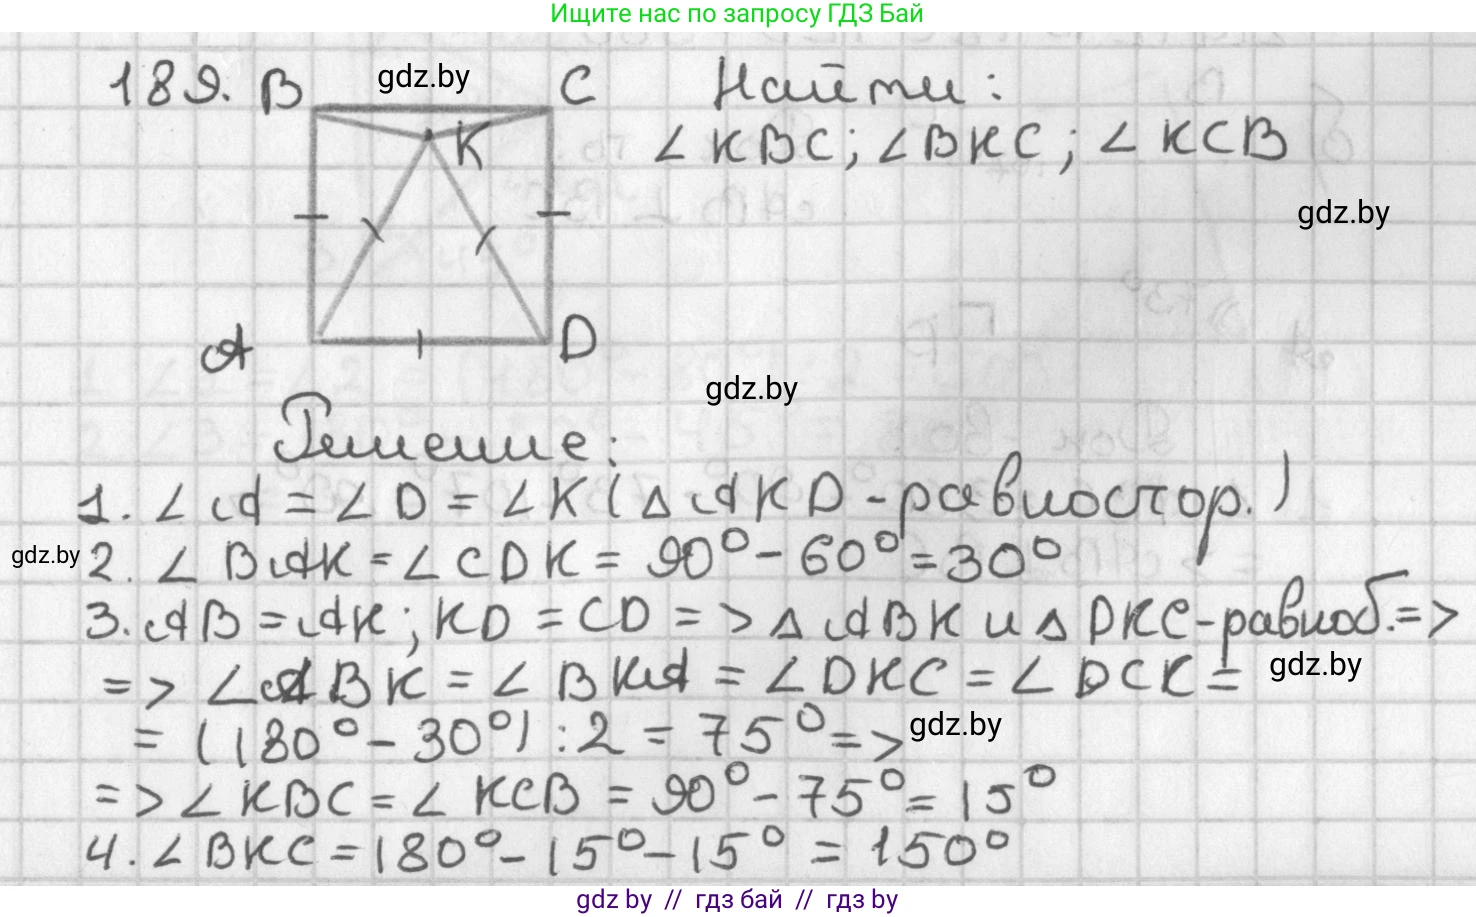 Ищите нас по запросу ГДЗ Бай
189. B gdz.by C Найти:
K ∠KBC; ∠BKC; ∠KCB
gdz.by
A D
gdz.by
Решение:
1. ∠A = ∠D = ∠K (△AKD - равностор.)
gdz.by 2. ∠BAK = ∠CDK = 90° - 60° = 30°
3. AB = AK; KD = CD => △ABK и △DKC - равноб. =>
=> ∠ABK = ∠BKA = ∠DKC = ∠DCK = gdz.by
= (180° - 30°) : 2 = 75° => gdz.by
=> ∠KBC = ∠KCB = 90° - 75° = 15°
4. ∠BKC = 180° - 15° - 15° = 150°
gdz by // гдз бай // гдз by